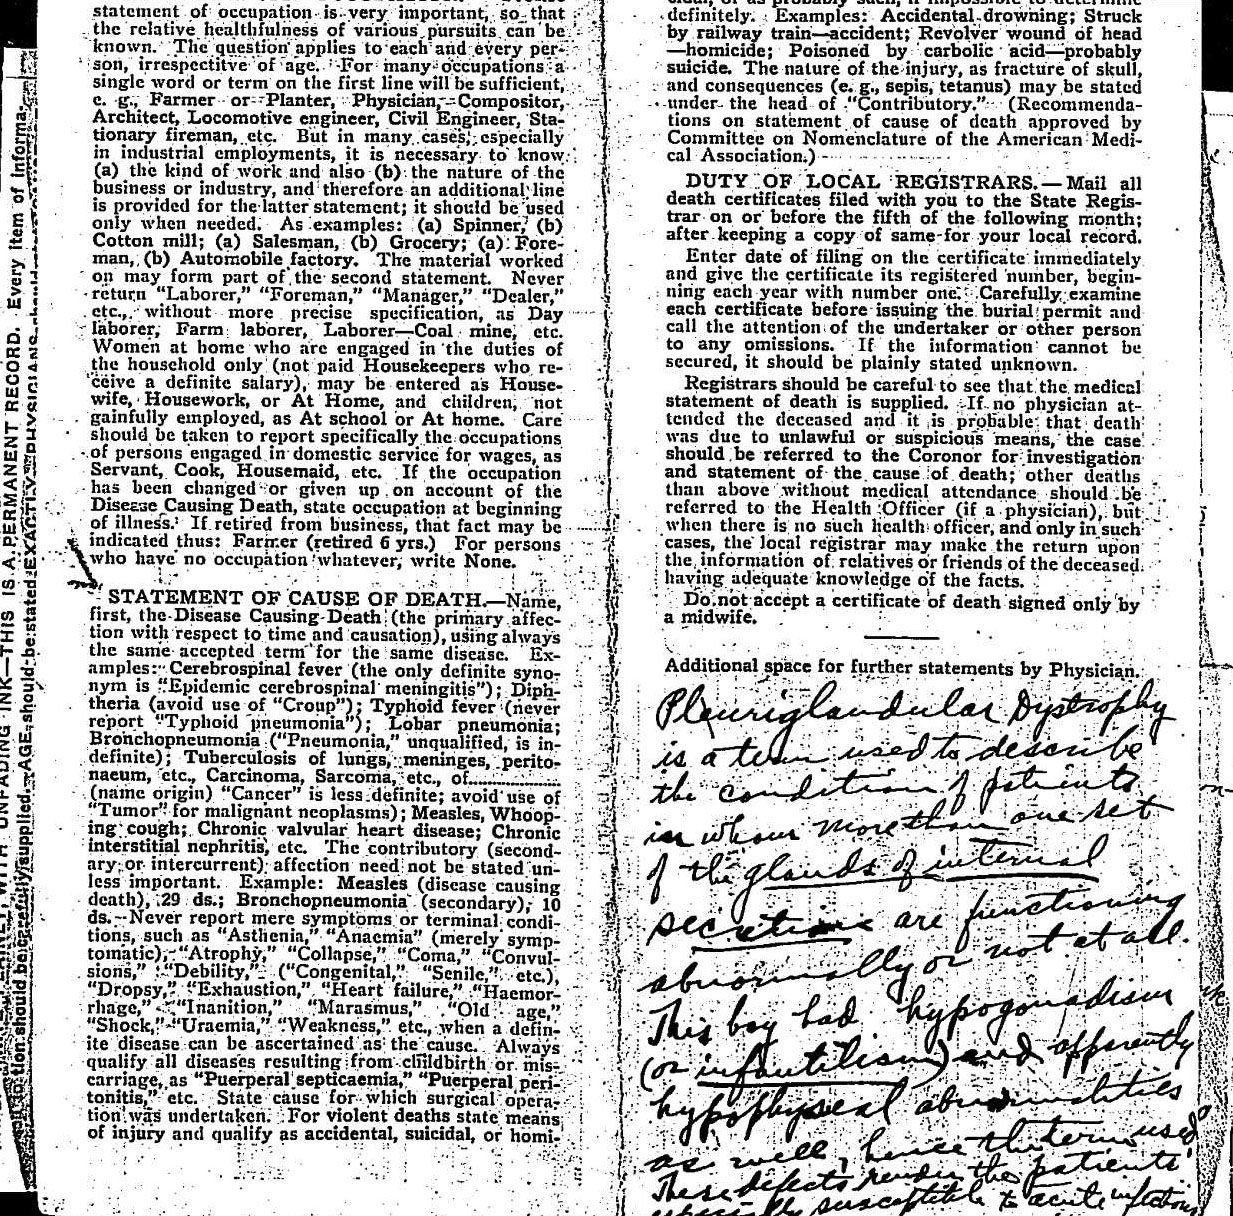 statement of occupation is very important, so that
the relative healthfulness of various pursuits can be
known. The question applies to each and every per-
son, irrespecitve of age. For many occupations a
single word or term on the first line will be sufficient,
e. g., Farmer or Planter, Physician, Compositor,
Architect, Locomotive engineer, Civil Engineer, Sta-
tionary fireman, etc. But in many cases, especially
in industrial employments, it is necessary to know
(a) the kind of work and also (b) the nature of the
business or industry, and therefore an additional line
is provided for the latter statement; it should be used
only when needed. As examples: (a) Spinner, (b)
Cotton mill; (a) Salesman, (b) Grocery; (a) Fore-
man, (b) Automobile factory. The material worked
on may form part of the second statement. Never
return "Laborer," "Foreman," "Manager," "Dealer,"
etc., without more precise specification, as Day
laborer, Farm laborer, Laborer—Coal mine, etc.
Women at home who are engaged in the duties of
the household only (not paid Housekeepers who re-
ceive a definite salary), may be entered as House-
wife, Housework, or At Home, and children, not
gainfully employed, as At school or At home. Care
should be taken to report specifically the occupations
of persons engaged in domestic service for wages, as
Servant, Cook, Housemaid, etc. If the occupation
has been changed or given up on account of the
Disease Causing Death, state occupation at beginning
of illness. If retired from business, that fact may be
indicated thus: Farmer (retired 6 yrs.) For persons
who have no occupation whatever, write None.
STATEMENT OF CAUSE OF DEATH.—Name,
first, the Disease Causing Death (the primary affec-
tion with respect to time and causation), using always
the same accepted term for the same disease. Ex-
amples: Cerebrospinal fever (the only definite syno-
nym is "Epidemic cerebrospinal meningitis"); Diph-
theria (avoid use of "Croup"); Typhoid fever (never
report "Typhoid pneumonia"); Lobar pneumonia;
Bronchopneumonia ("Pneumonia," unqualified, is in-
definite); Tuberculosis of lungs, meninges, perito-
naeum, etc., Carcinoma, Sarcoma, etc., of..............
(name origin) "Cancer" is less definite; avoid use of
"Tumor" for malignant neoplasms); Measles, Whoop-
ing cough; Chronic valvular heart disease; Chronic
interstitial nephritis, etc. The contributory (second-
ary or intercurrent) affection need not be stated un-
less important. Example: Measles (disease causing
death), 29 ds.; Bronchopneumonia (secondary), 10
ds. Never report mere symptoms or terminal condi-
tions, such as "Asthenia," "Anaemia" (merely symp-
tomatic), "Atrophy," "Collapse," "Coma," "Convul-
sions," "Debility," ("Congenital," "Senile," etc.),
"Dropsy," "Exhaustion," "Heart failure," "Haemor-
rhage," "Inanition," "Marasmus," "Old age,"
"Shock," "Uraemia," "Weakness," etc., when a defin-
ite disease can be ascertained as the cause. Always
qualify all diseases resulting from childbirth or mis-
carriage, as "Puerperal septicaemia," "Puerperal peri-
tonitis," etc. State cause for which surgical opera-
tion was undertaken. For violent deaths state means
of injury and qualify as accidental, suicidal, or homi-
definitely. Examples: Accidental drowning; Struck
by railway train—accident; Revolver wound of head
—homicide; Poisoned by carbolic acid—probably
suicide. The nature of the injury, as fracture of skull,
and consequences (e. g., sepsis, tetanus) may be stated
under the head of "Contributory." (Recommenda-
tions on statement of cause of death approved by
Committee on Nomenclature of the American Medi-
cal Association.)
DUTY OF LOCAL REGISTRARS.—Mail all
death certificates filed with you to the State Regis-
trar on or before the fifth of the following month;
after keeping a copy of same for your local record.
Enter date of filing on the certificate immediately
and give the certificate its registered number, begin-
ning each year with number one. Carefully examine
each certificate before issuing the burial permit and
call the attention of the undertaker or other person
to any omissions. If the information cannot be
secured, it should be plainly stated unknown.
Registrars should be careful to see that the medical
statement of death is supplied. If no physician at-
tended the deceased and it is probable that death
was due to unlawful or suspicious means, the case
should be referred to the Coronor for investigation
and statement of the cause of death; other deaths
than above without medical attendance should be
referred to the Health Officer (if a physician), but
when there is no such health officer, and only in such
cases, the local registrar may make the return upon
the information of relatives or friends of the deceased
having adequate knowledge of the facts.
Do not accept a certificate of death signed only by
a midwife.
Additional space for further statements by Physician.
Pleuriglandular Dystrophy
is a term used to describe
the condition of patients
in whom more than one set
of the glands of internal
secretions are functioning
abnormally or not at all.
This boy had hypogonadism
(or infantilism) and apparently
hypophyseal abnormalities
as well, hence the term used
These defects render the patients
especially susceptible to acute infections
UNFADING INK—THIS IS A PERMANENT RECORD. Every item of informa-
tion should be carefully supplied. AGE should be stated EXACTLY. PHYSICIANS should